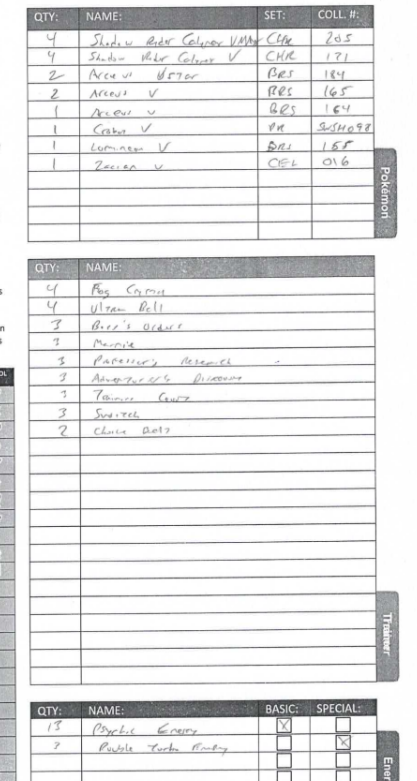 QTY: NAME: SET: COLL. #:
4 Shadow Rider Calyrex VMAX CHR 205
4 Shadow Rider Calyrex V CHR 171
2 Arceus Vstar BRS 184
2 Arceus V BRS 165
1 Arceus V BRS 164
1 Crobat V PR SWSH098
1 Lumineon V BRS 155
1 Zacian V CEL 016
Pokémon
QTY: NAME:
4 Fog Crystal
4 Ultra Ball
3 Boss's Orders
3 Marnie
3 Professor's Research
3 Adventurer's Discovery
3 Training Court
3 Switch
2 Choice Belt
Trainer
QTY: NAME: BASIC: SPECIAL:
13 Psychic Energy X
Double Turbo Energy X
Ener